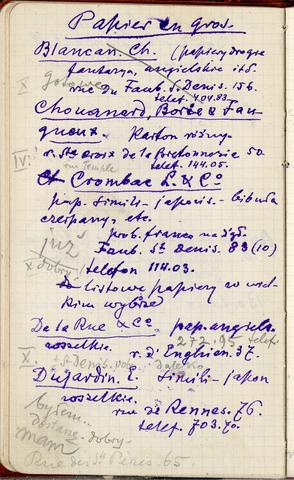 Papier en gros.
Blancan Ch. (papiery drogie
X gotowe fantazyj., angielskie itd.
rue du Faub. St Denis. 156.
telef. 404.83.
Chouanard, Boire & Fau-
queux. Karton różny
IV. r. Ste Croix de la Bretonnerie 50.
rue Temple telef. 144.05.
Crombac L. & Co
pap. simili-japonis. bibuła
czerpany, etc.
prób. franco
już Faub. St Denis. 83 (10)
X dobry telefon 114.03.
listowe papiery w wiel-
kim wyborze
De la Rue & Co. pap. angiels.
272.95 telef.
wszelkie. r. d'Enghien. 37.
X. St Denis
Dujardin. E. Simili-japon
wszelkie.
byłem. rue de Rennes. 76.
dobry. telef. 703.70.
mam
Rue des Sts Pères. 65